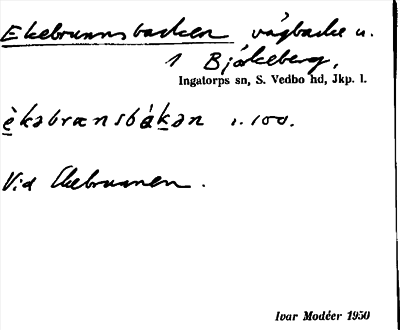 Ekebrunnsbacken vägbacke u.
1 Bjälkeberg,
Ingatorps sn, S. Vedbo hd, Jkp. l.
èkəbrænsbákən i. 100.
Vid Ekebrunnen.
Ivar Modéer 1950